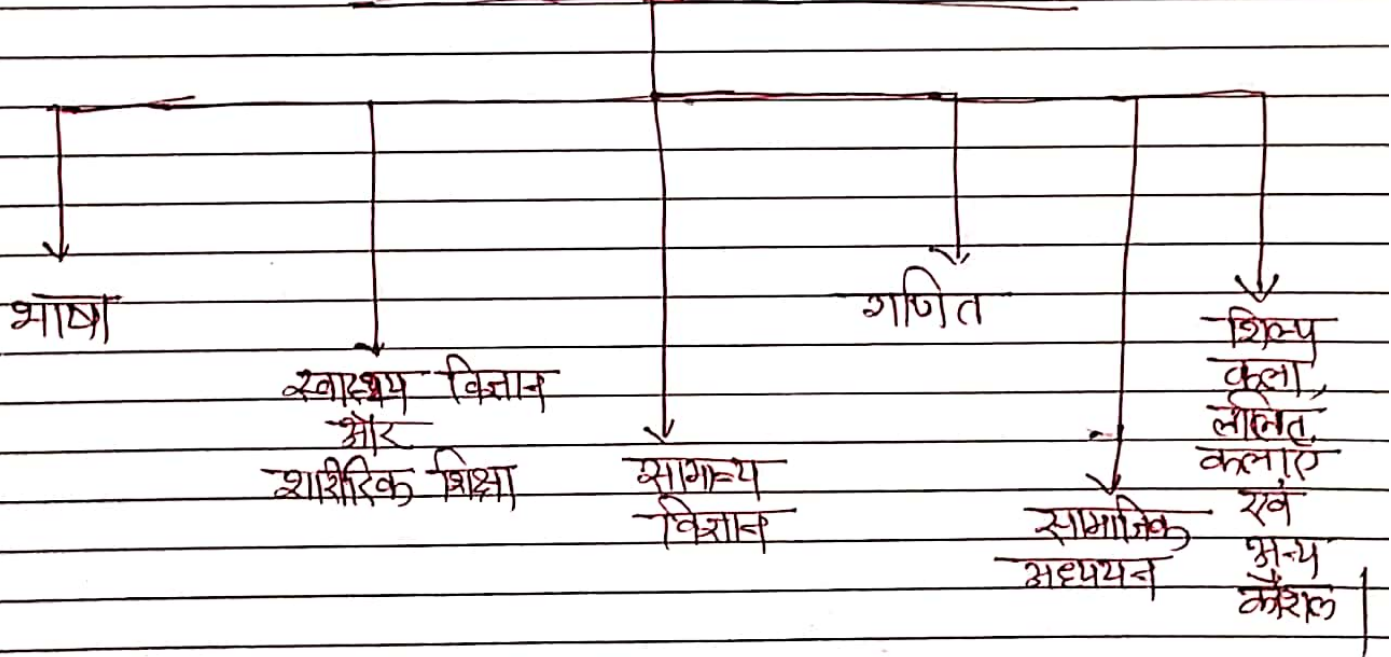 भाषा
स्वास्थ्य विज्ञान
और
शारीरिक शिक्षा
सामान्य
विज्ञान
गणित
सामाजिक
अध्ययन
शिल्प
कला,
ललित
कलाएं
एवं
अन्य
कौशल